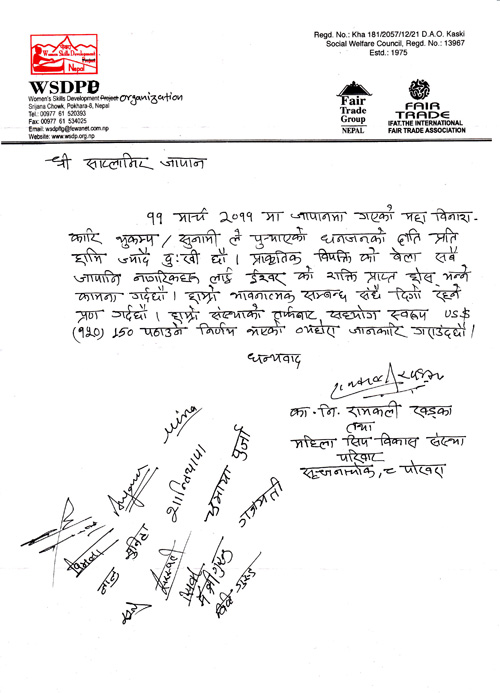 Women Skills Development
Project
Nepal
WSDPO
Women's Skills Development Project organization
Srijana Chowk, Pokhara-8, Nepal
Tel.: 00977 61 520393
Fax: 00977 61 534025
Email: wsdpltg@fewanet.com.np
Website: www.wsdp.org.np
Regd. No.: Kha 181/2057/12/21 D.A.O. Kaski
Social Welfare Council, Regd. No.: 13967
Estd.: 1975
Fair
Trade
Group
NEPAL
FAIR
TRADE
IFAT.THE INTERNATIONAL
FAIR TRADE ASSOCIATION
श्री साप्लानिट जापान
११ मार्च २०११ मा जापानमा गएको महा विनाश
कारि भुकम्प / सुनामी ले पुर्‍याएको धनजनको क्षति प्रति
हामि ज्यादै दुःखी छौ । प्राकृतिक विपत्ति को बेला सबै
जापानि नागरिकहरु लाई ईश्वर को शक्ति प्राप्त होस् भन्ने
कामना गर्दछौ । हाम्रो भावनात्मक सम्बन्ध सधै दिगो रहने
प्रण गर्दछौ । हाम्रो संस्थाको तर्फबाट सहयोग स्वरूप US.$
(१५०) 150 पठाउने निर्णय भएको व्यहोरा जानकारि गराउदछौ ।
धन्यवाद
का. नि. रामकली खड्का
तथा
महिला सिप विकास संस्था
परिवार
सृजनाचोक, ८ पोखरा
mina
शान्ति थापा
यमाया पुर्जा
गजमती
सुनिता
लाल
विमला
सरस्वती
मैश्री गुरुङ